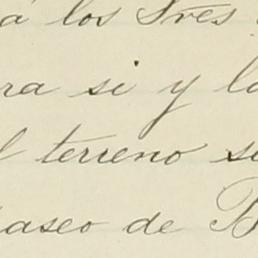 á los Sres
ra si y lo
l terreno se
aseo de B